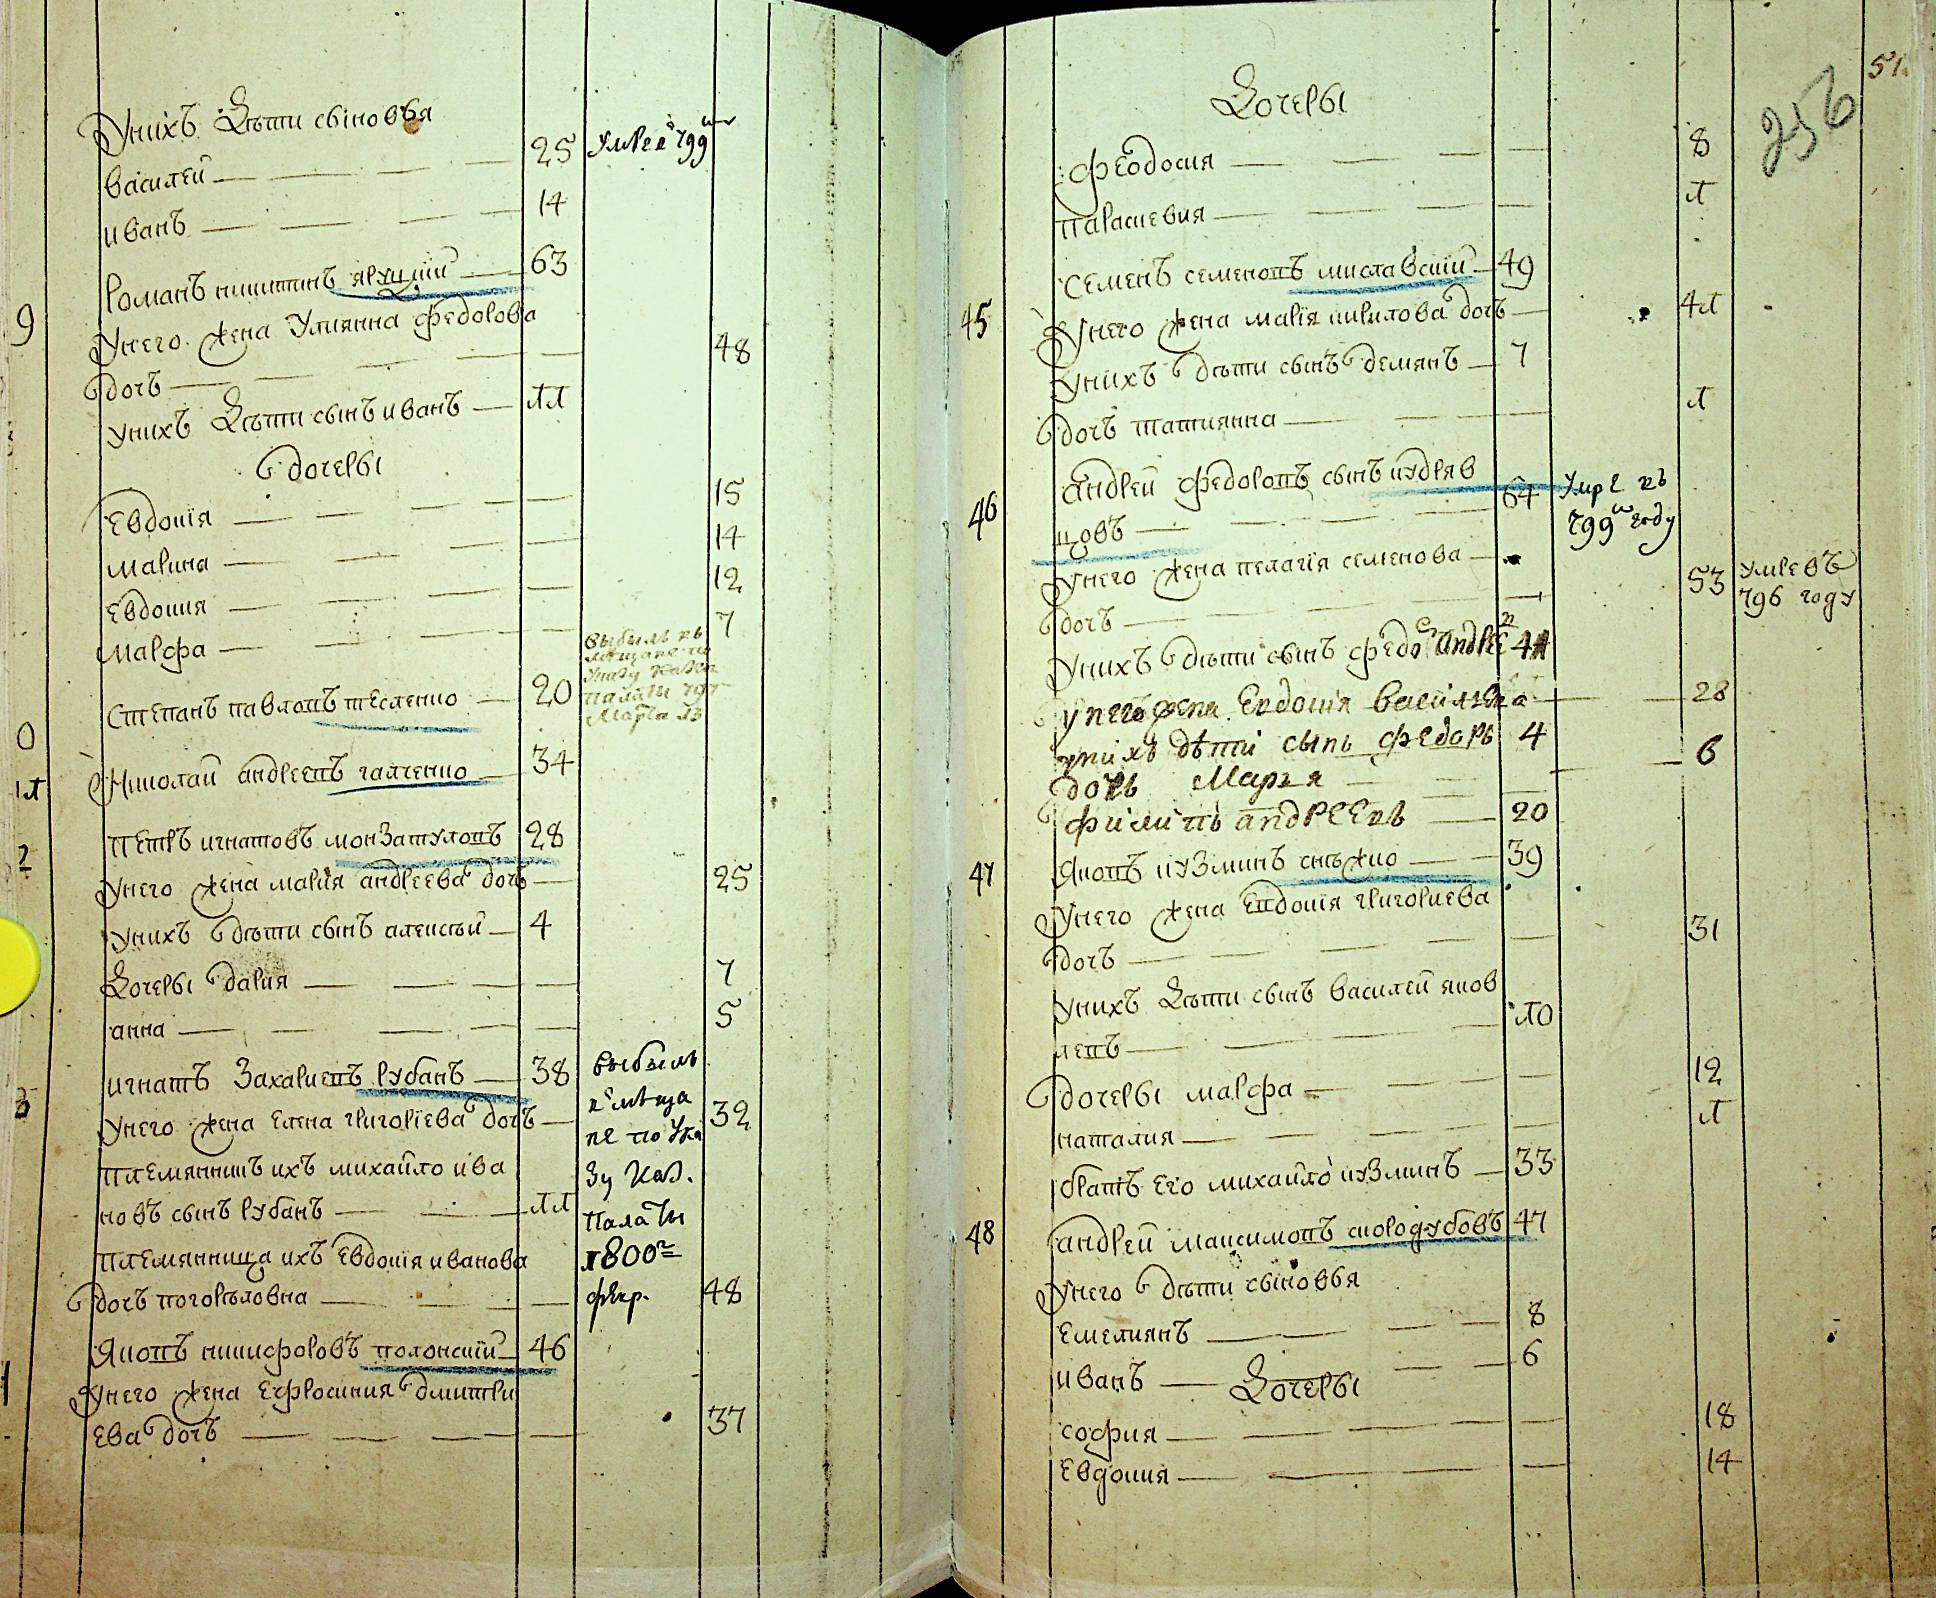 У нихъ дѣти сыновья
василей 25 умре в 799м
иванъ 14
романъ никитинъ яруцкий 63
9 У него жена Улиянна федорова
дочь 48
У нихъ дѣти сынъ иванъ 11
дочеры
Евдокія 15
марина 14
Евдокия 12
марфа 7
Степанъ павловъ тесленко 20 выбылъ въ мещане по указу казен палати 797 марта 13
0
11 Николай андреевъ галченко 34
2 Петръ игнатовъ монзатуловъ 28
У него жена мария андреева дочь 25
У нихъ дѣти сынъ алексѣй 4
Дочеры дария 7
анна 5
3 игнатъ Захариевъ рубанъ 38 выбылъ
У него жена Елена григоріева дочь 32 в мѣща
не по Ука
племянникъ ихъ михайло ива зу Каз.
новъ сынъ рубанъ 11 Палаты
племянница ихъ Евдокія иванова 1800г
дочь погорѣловна февр. 48
Яковъ никифоровъ полонский 46
У него жена Ефросиния дмитри
ева дочь 37
51
256
Дочеры
феодосия 8
параскевия 1
Семенъ семеновъ миславский 49
45 У него жена марія кирилова дочь 41
У нихъ дѣти сынъ демянъ 7
дочь татиянна 1
46 андрей федоровъ сынъ кудряв 64 Умре въ
цовъ 799м году
У него жена пелагія семенова
дочь 53 умре въ 796 году
У нихъ дѣти сынъ федо андрее
у него жена Евдокія василева 28
у нихъ дѣти сынъ федоръ 4
дочь Марья 6
филипъ андреевъ 20
47 Яковъ кузминъ снѣжко 39
У него жена Евдокія григориева
дочь 31
У нихъ дѣти сынъ василей яков
левъ 10
дочеры марфа 12
наталия 1
братъ его михайло кузминъ 33
48 андрей максимовъ скородубовъ 47
У него дѣти сыновья
емелиянъ 8
иванъ 6
Дочеры
софия 18
Евдокия 14